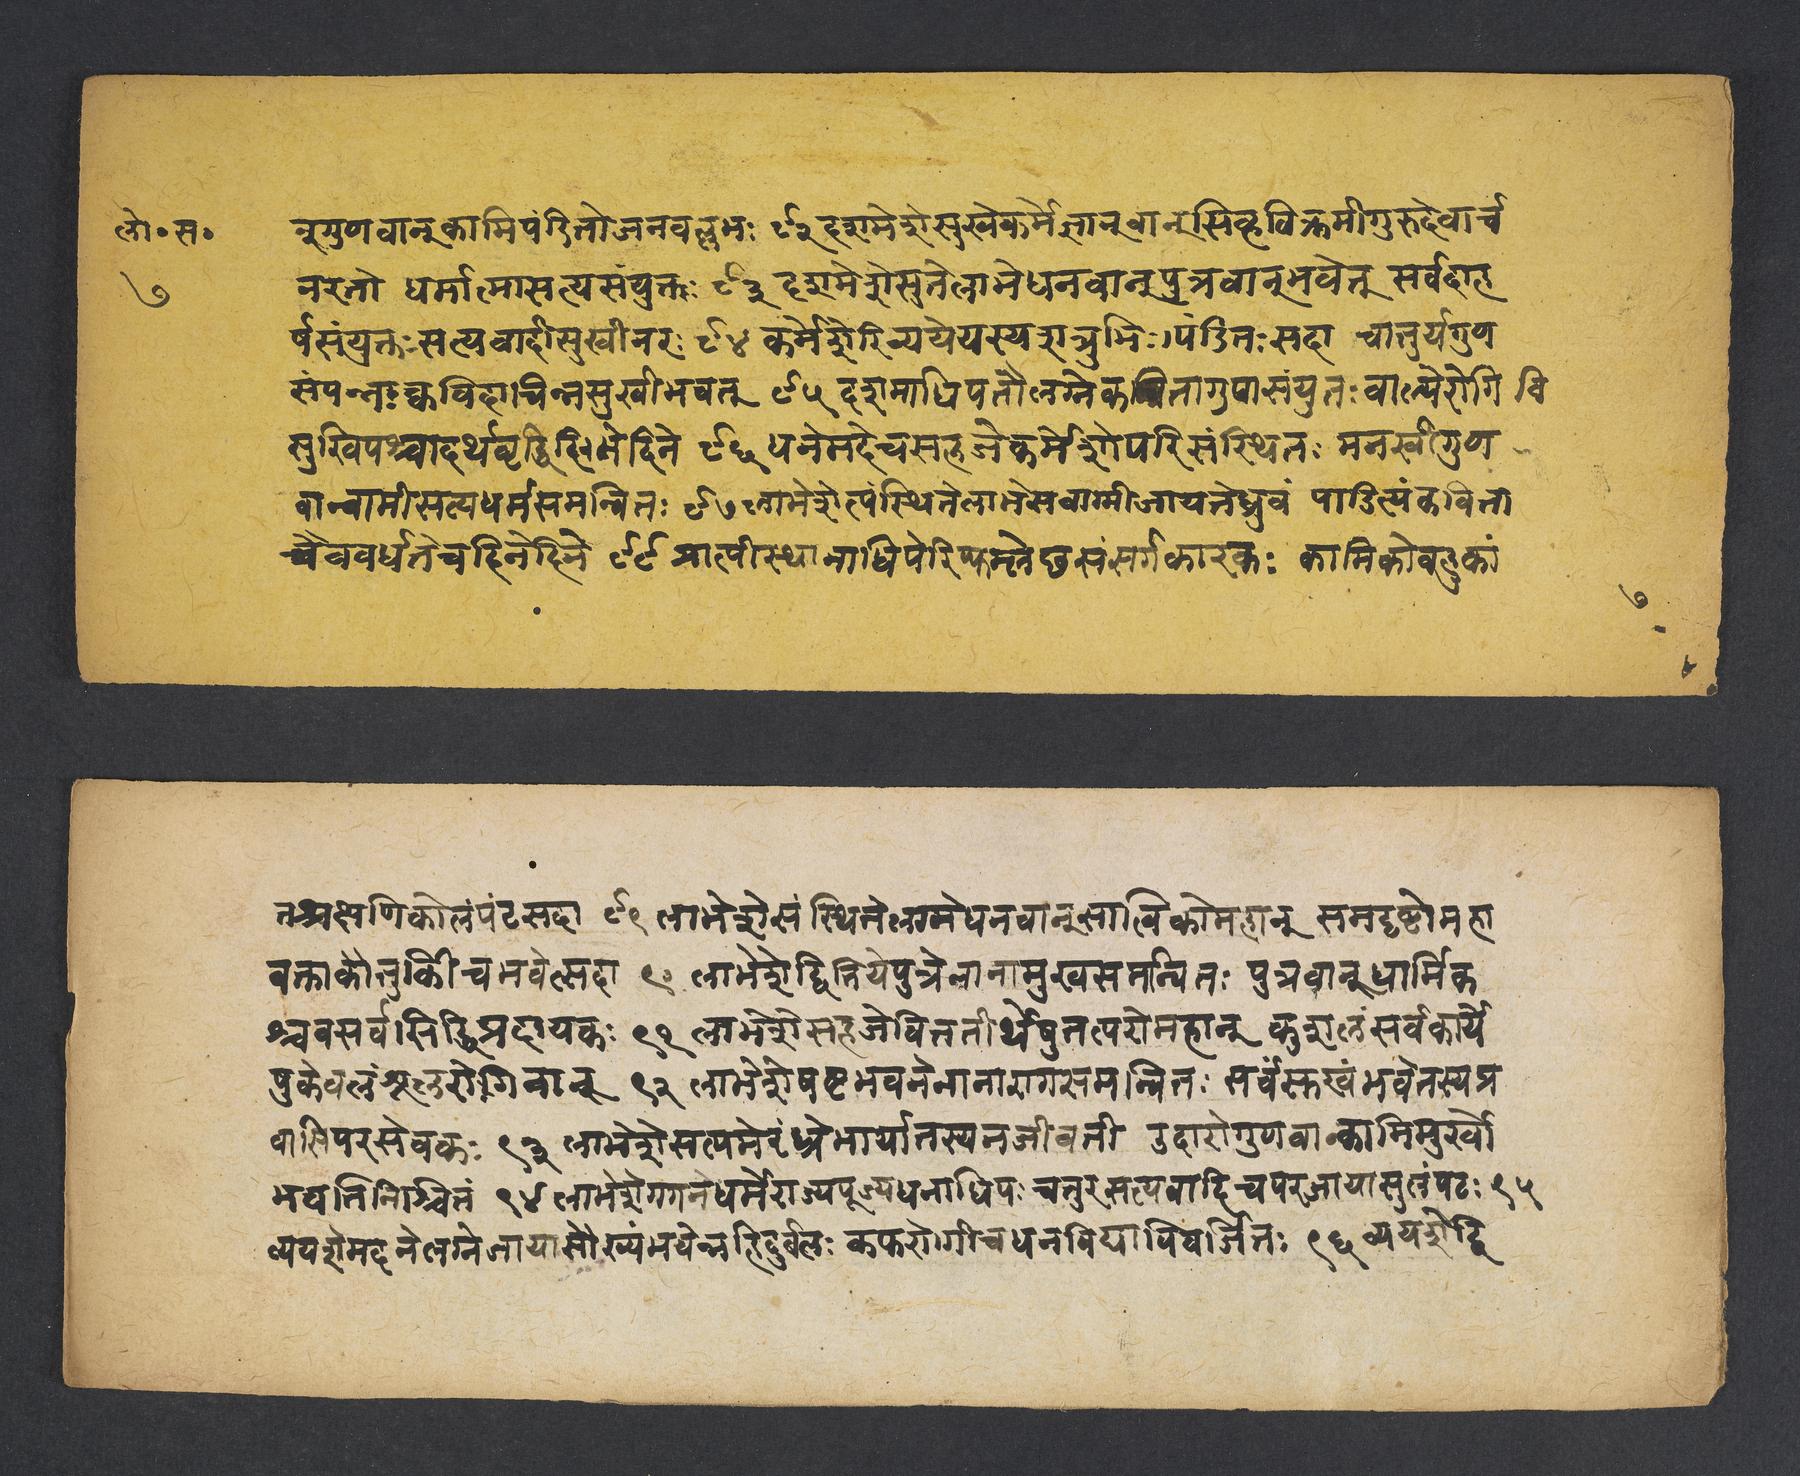 लो॰स॰
७
न्गुणवान्कामिपंडितोजनवल्लभः ८२ दशमेशेसुखेकर्मेज्ञानवान्सिव्हविक्रमीगुरुदेवार्च
नरतो धर्मात्मासत्यसंयुक्तः ८३ दशमेशेसुतेलाभेधनवान्पुत्रवान्भवेत् सर्वदाह
र्षसंयुक्तःसत्यवादीसुखीनरः ८४ कर्मेशेरिव्ययेयस्यशत्रुभिःपंडितःसदा चातुर्यगुण
संपन्नःक्वविदाचिन्नसुखीभवेत् ८५ दशमाधिपतौलग्नेकवितागुणसंयुतःबाल्येरोगि वि
सुखिपश्चादर्थवृद्धिर्दिनेदिने ८६ धनेमदेचसहजेकर्मेशोपरिसंस्थितः मनस्वीगुण
वान्वाग्मीसत्यधर्मसमन्वितः ८७ लाभेशेत्पंस्थितेलाभेसवाग्मीजायतेध्रुवं पांडित्यंकविता
चैववर्धतेचदिनेदिने ८८ प्राप्तीस्थानाधिपेरिष्फम्लेछसंसर्गकारकः कामिकोबहुकां
७
तश्चक्षणिकोलंपंटसदा ८९ लाभेशेसंस्थितेलग्नेधनवान्सात्विकोमहान् समदृष्टोमहा
वक्ताकौतुकिीचभवेत्सदा ९० लाभेशेद्वितियेपुत्रेनानासुखसमन्वितः पुत्रवान्धार्मिक
श्चवसर्वसिद्धिप्रदायकः ९१ लाभेशेसहजेवित्ततीर्थेषुतत्परोमहान् कुशलंसर्वकार्ये
षुकेवलंशूलरोगिवान् ९२ लाभेशेषष्टभवनेनानारोगसमन्वितः सर्वंसुखंभवेत्तस्यप्र
वासिपरसेवकः ९३ लाभेशेसप्तमेरंध्रेभार्यातस्यनजीवती उदारोगुणवान्कामिमुर्खो
भवतिनिश्चितं ९४ लाभेशेगगनेधर्मेराज्यपूज्यधनाधिपः चतुरसत्यवादिचपरजायासुलंपटः ९५
व्ययशेमदनेलग्नेजायासौख्यंभवेन्नहिदुर्बलः कफरोगीचधनविद्याविवर्जितः ९६ व्ययेशेद्वि